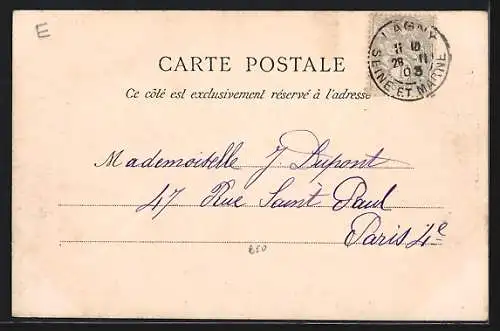 E
LAGNY
11 10
26 11
03
SEINE ET MARNE
CARTE POSTALE
Ce côté est exclusivement réservé à l'adresse
Mademoiselle J. Dupont
47 Rue Saint Paul
Paris 4e